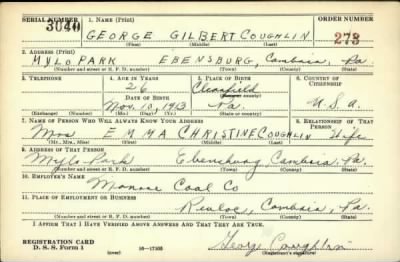 SERIAL NUMBER 1. NAME (Print) ORDER NUMBER
3040 GEORGE GILBERT COUGHLIN 273
(First) (Middle) (Last)
2. ADDRESS (Print)
MYLO PARK EBENSBURG, Cambria, Pa.
(Number and street or R. F. D. number) (Town) (County) (State)
3. TELEPHONE 4. AGE IN YEARS 5. PLACE OF BIRTH 6. COUNTRY OF CITIZENSHIP
26 Clearfield
DATE OF BIRTH (Town or county)
Nov. 10, 1913 Pa. U.S.A.
(Exchange) (Number) (Mo.) (Day) (Yr.) (State or country)
7. NAME OF PERSON WHO WILL ALWAYS KNOW YOUR ADDRESS 8. RELATIONSHIP OF THAT PERSON
Mrs EMMA CHRISTINE COUGHLIN Wife
(Mr., Mrs., Miss) (First) (Middle) (Last)
9. ADDRESS OF THAT PERSON
Mylo Park Ebensburg, Cambria, Pa.
(Number and street or R. F. D. number) (Town) (County) (State)
10. EMPLOYER'S NAME
Monroe Coal Co
11. PLACE OF EMPLOYMENT OR BUSINESS
Revloc, Cambria, Pa.
(Number and street or R. F. D. number) (Town) (County) (State)
I AFFIRM THAT I HAVE VERIFIED ABOVE ANSWERS AND THAT THEY ARE TRUE.
REGISTRATION CARD
D. S. S. Form 1 (over) 16—17105 George Coughlin
(Registrant's signature)